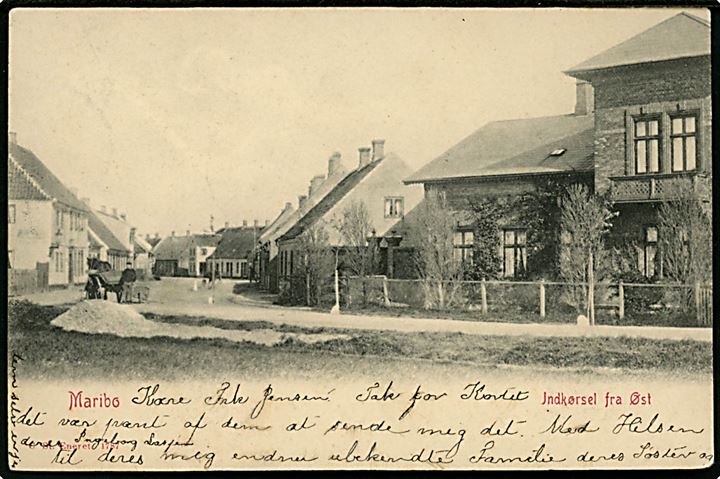 Maribo
Indkørsel fra Øst
Kære Frk Jensen! Tak for Kortet
det var pænt af dem at sende meg det. Med Hilsen
til deres meg endnu ubekendte Familie deres Søster og
deres Ingeborg
Eneret 1757